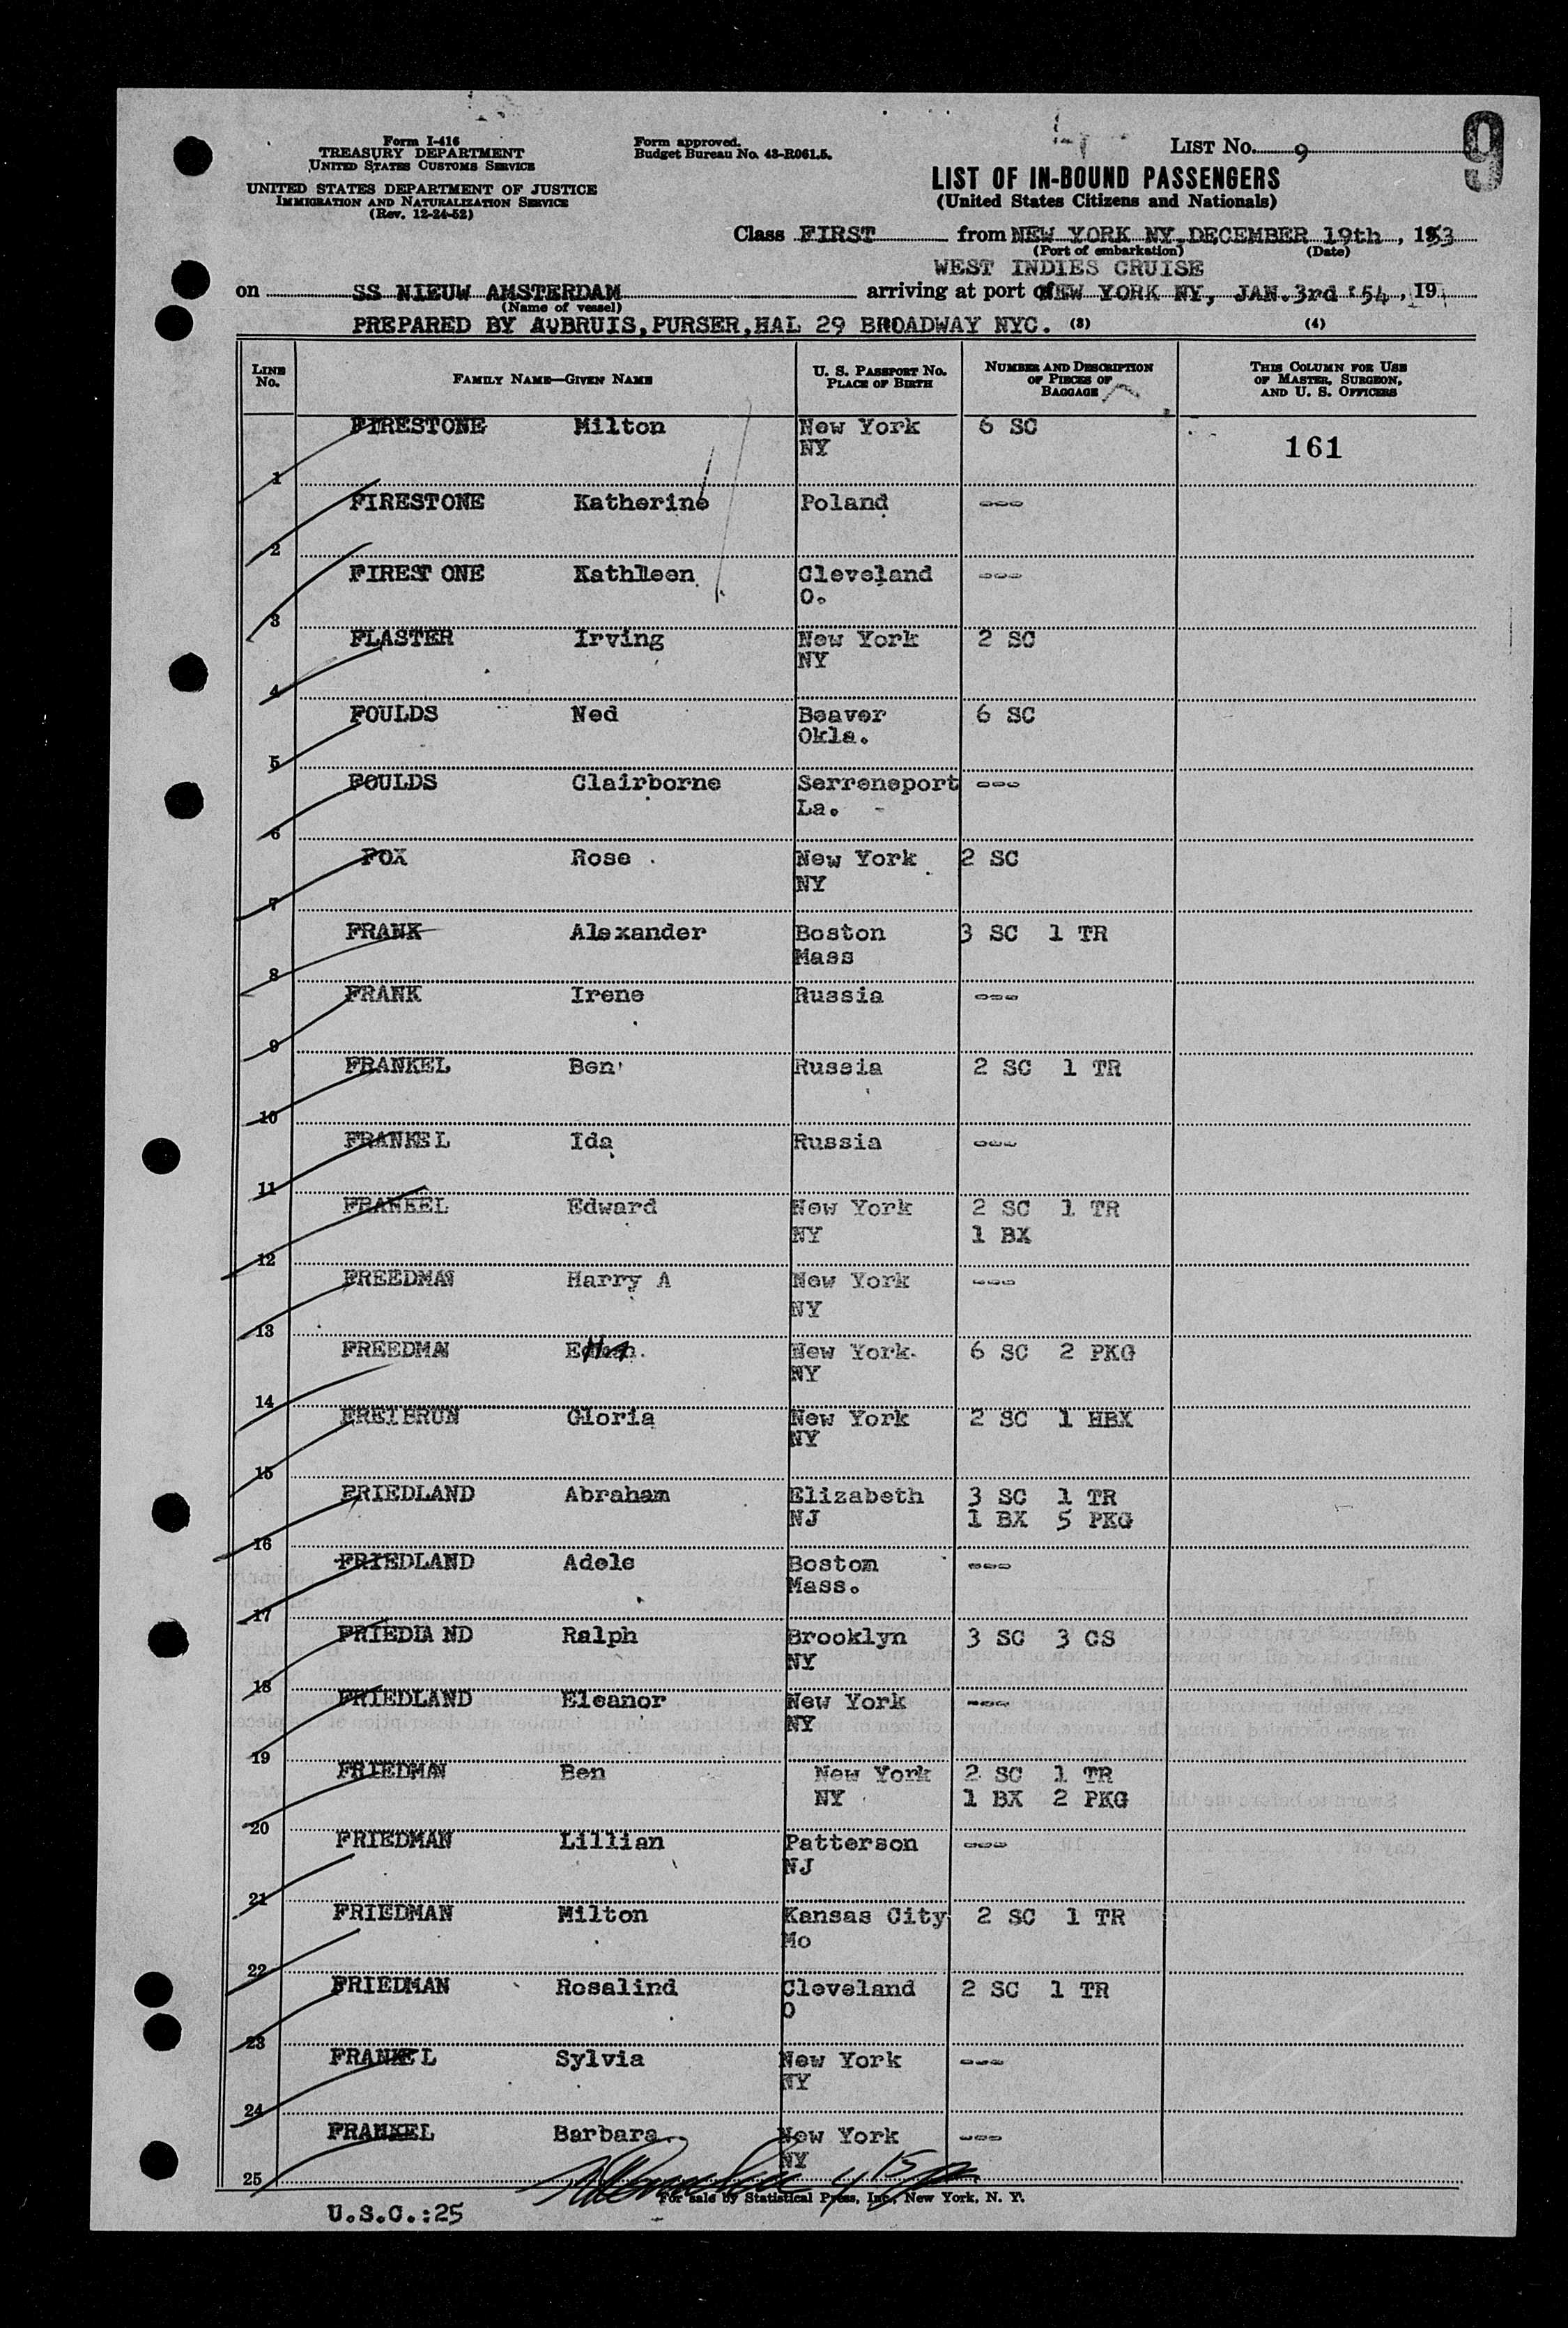 9
Form I-416
TREASURY DEPARTMENT
UNITED STATES CUSTOMS SERVICE
UNITED STATES DEPARTMENT OF JUSTICE
IMMIGRATION AND NATURALIZATION SERVICE
(Rev. 12-24-52)
Form approved.
Budget Bureau No. 43-R061.5.
LIST No. 9
LIST OF IN-BOUND PASSENGERS
(United States Citizens and Nationals)
Class FIRST from NEW YORK NY, DECEMBER 19th, 1953
(Port of embarkation) (Date)
WEST INDIES CRUISE
on SS NIEUW AMSTERDAM arriving at port of NEW YORK NY, JAN.3rd '54, 19
(Name of vessel)
PREPARED BY AvBRUIS,PURSER,HAL 29 BROADWAY NYC. (3) (4)
LINE No. FAMILY NAME—GIVEN NAME U. S. PASSPORT NO. PLACE OF BIRTH NUMBER AND DESCRIPTION OF PIECES OF BAGGAGE THIS COLUMN FOR USE OF MASTER, SURGEON, AND U. S. OFFICERS
1 FIRESTONE Milton New York NY 6 SC 161
2 FIRESTONE Katherine Poland ---
3 FIREST ONE Kathleen Cleveland O. ---
4 FLASTER Irving New York NY 2 SC
5 FOULDS Ned Beaver Okla. 6 SC
6 FOULDS Clairborne Serreneport La. ---
7 FOX Rose New York NY 2 SC
8 FRANK Alexander Boston Mass 3 SC 1 TR
9 FRANK Irene Russia ---
10 FRANKEL Ben Russia 2 SC 1 TR
11 FRANKEL Ida Russia ---
12 FRANKEL Edward New York NY 2 SC 1 TR 1 BX
13 FREEDMAN Harry A New York NY ---
14 FREEDMAN New York NY 6 SC 2 PKG
15 FREIBRUN Gloria New York NY 2 SC 1 HBX
16 FRIEDLAND Abraham Elizabeth NJ 3 SC 1 TR 1 BX 5 PKG
17 FRIEDLAND Adele Boston Mass. ---
18 FRIEDLA ND Ralph Brooklyn NY 3 SC 3 CS
19 FRIEDLAND Eleanor New York NY ---
20 FRIEDMAN Ben New York NY 2 SC 1 TR 1 BX 2 PKG
21 FRIEDMAN Lillian Patterson NJ ---
22 FRIEDMAN Milton Kansas City Mo 2 SC 1 TR
23 FRIEDMAN Rosalind Cleveland O 2 SC 1 TR
24 FRANKEL Sylvia New York NY ---
25 FRANKEL Barbara New York NY ---
For sale by Statistical Press, Inc., New York, N. Y.
U.S.C.:25